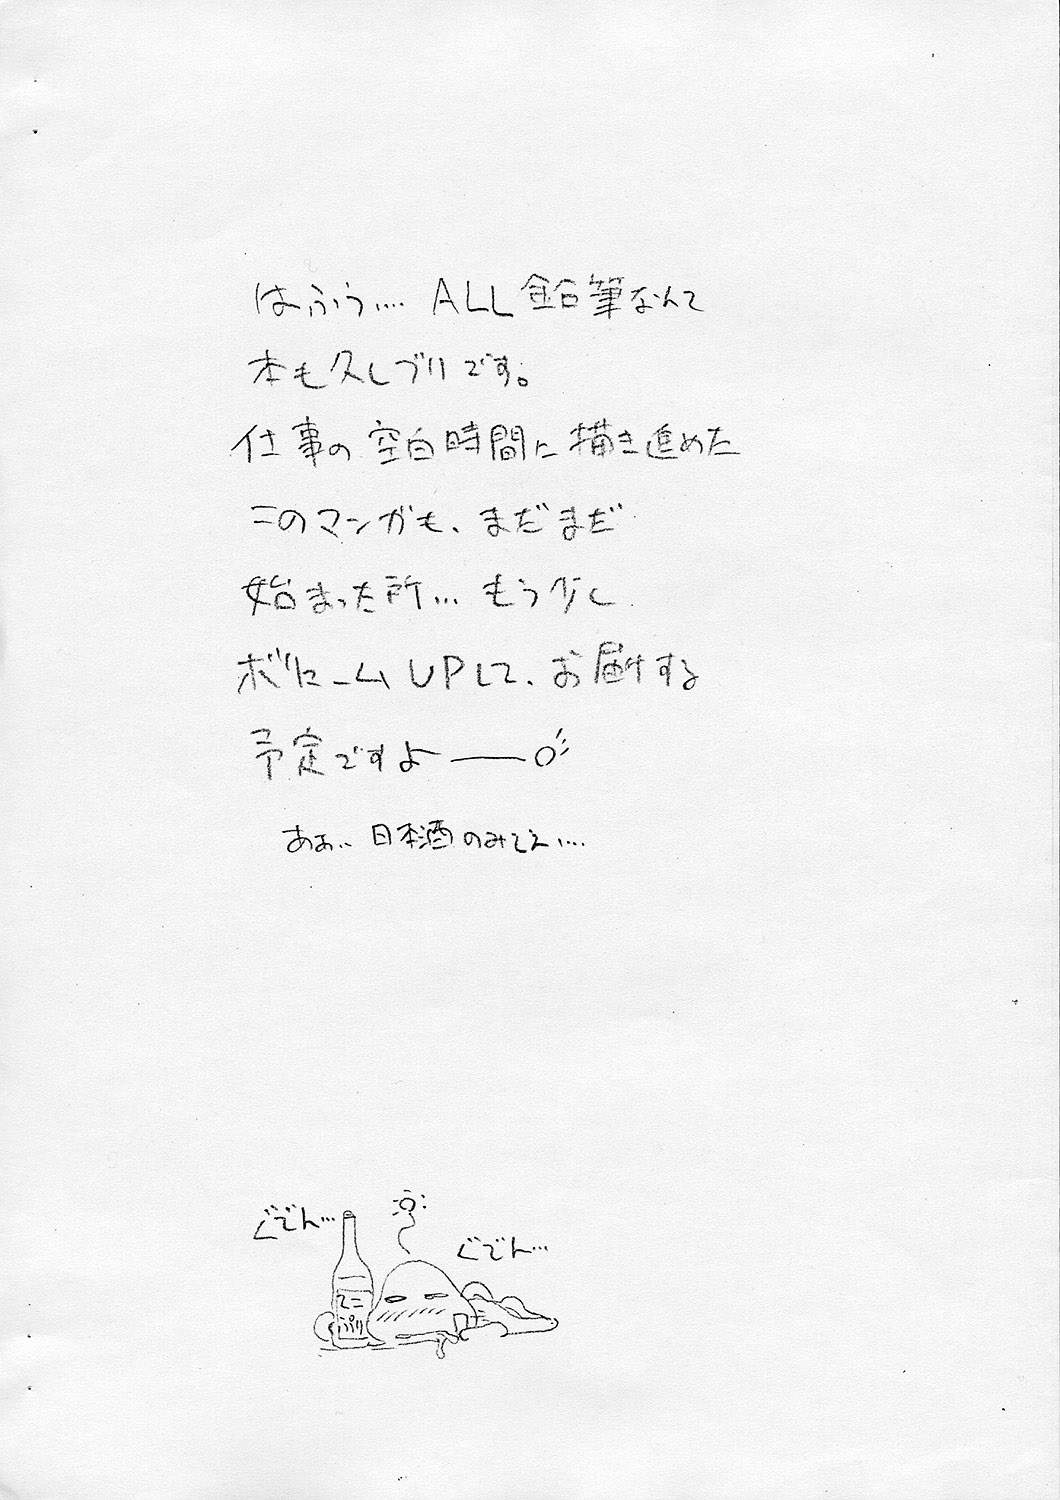 はふぅ.... ALL鉛筆なんて
本も久しブリです。
仕事の空白時間に描き進めた
このマンガも、まだまだ
始まった所... もう少し
ボリームUPして、お届する
予定ですよ――o
あぁ.. 日本酒のみてえ....
ぐでん...
ぐでん...
ぷり